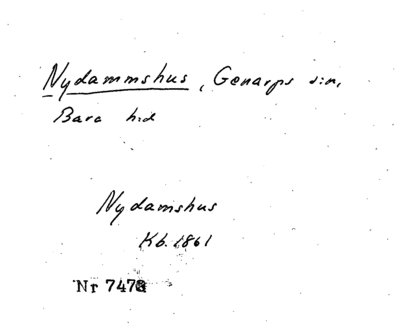 Nydammshus, Genarps sn,
Bara hd
Nydamshus
Kb. 1861
Nr 7473